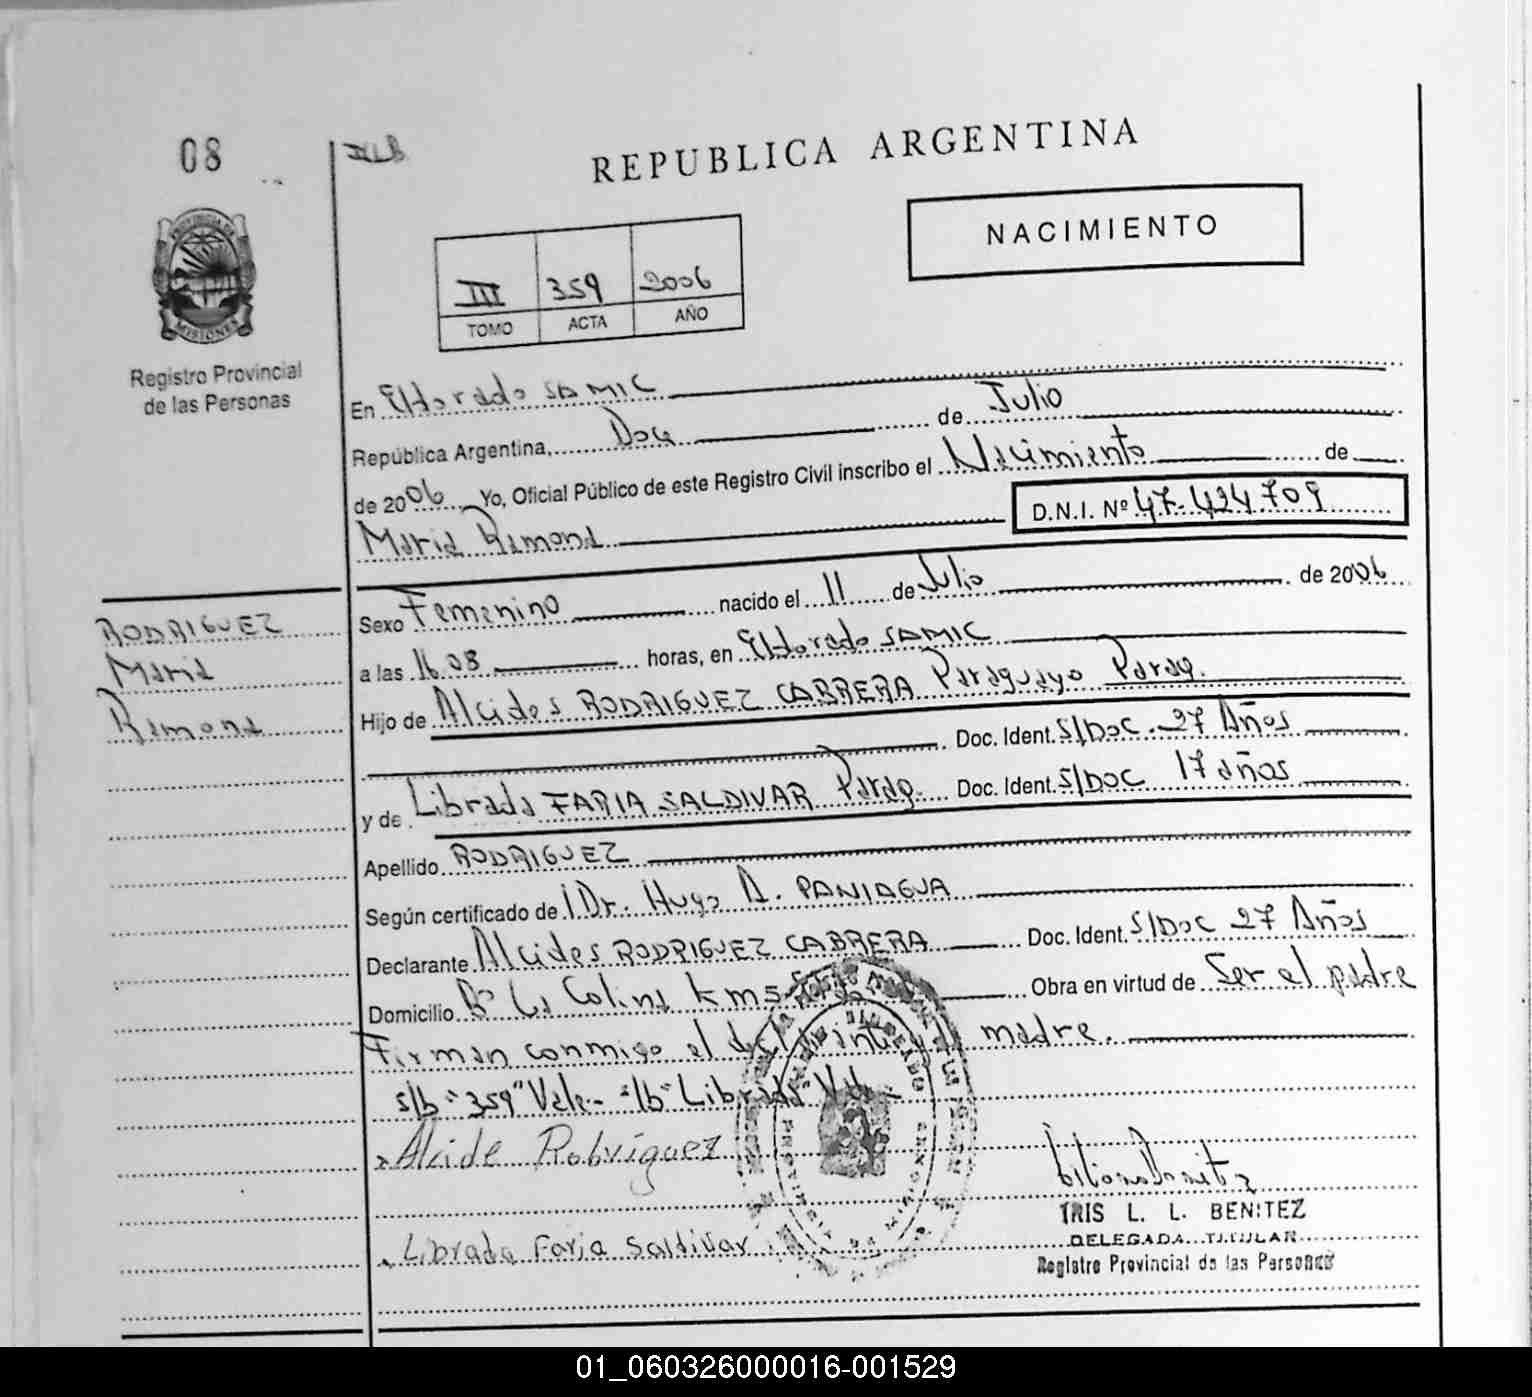 08
REPUBLICA ARGENTINA
NACIMIENTO
PROVINCIA DE
MISIONES
Registro Provincial
de las Personas
III 359 2006
TOMO ACTA AÑO
En Eldorado SAMIC
República Argentina, Doce de Julio
de 2006 Yo, Oficial Público de este Registro Civil inscribo el Nacimiento de
Maria Ramona D.N.I. Nº 47.424.709
RODRIGUEZ
Maria
Ramona
Sexo Femenino nacido el 11 de Julio de 2006
a las 16.08 horas, en Eldorado SAMIC
Hijo de Alcides RODRIGUEZ CABRERA Paraguayo Parag.
Doc. Ident. S/Doc. 27 Años
y de Librada FARIA SALDIVAR Parag. Doc. Ident. S/DOC 17 años
Apellido RODRIGUEZ
Según certificado de Dr. Hugo A. PANIAGUA
Declarante Alcides RODRIGUEZ CABRERA Doc. Ident. S/Doc 27 Años
Domicilio Bº La Colina Km5 Obra en virtud de Ser el padre
Firman conmigo el declarante y la madre.
s/b "359" Vale - s/b "Librada" Vale -
Alcide Robriguez
Librada Faria Saldivar
IRIS L. L. BENITEZ
DELEGADA TITULAR
Registro Provincial de las Personas
01_060326000016-001529